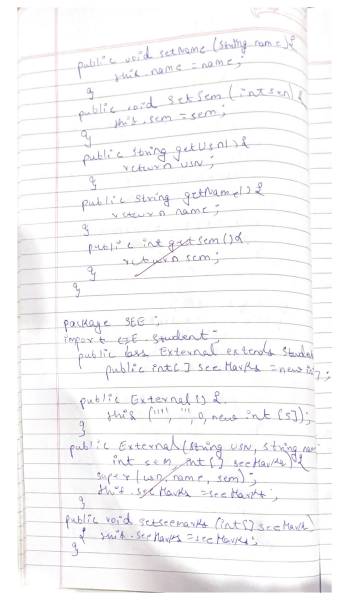 public void setName (String name) {
this.name = name;
}
public void setSem (int sem) {
this.sem = sem;
}
public String getUsn() {
return usn;
}
public String getName() {
return name;
}
public int getSem() {
return sem;
}
}
package SEE;
import CIE.Student;
public class External extends Student
public int[] seeMarks = new int[];
public External() {
this ("", "", 0, new int [5]);
}
public External (String usn, String name
int sem, int [] seeMarks) {
super (usn, name, sem);
this.seeMarks = seeMarks;
}
public void setseemarks (int[] seeMarks)
{ this.seeMarks = seeMarks;
}